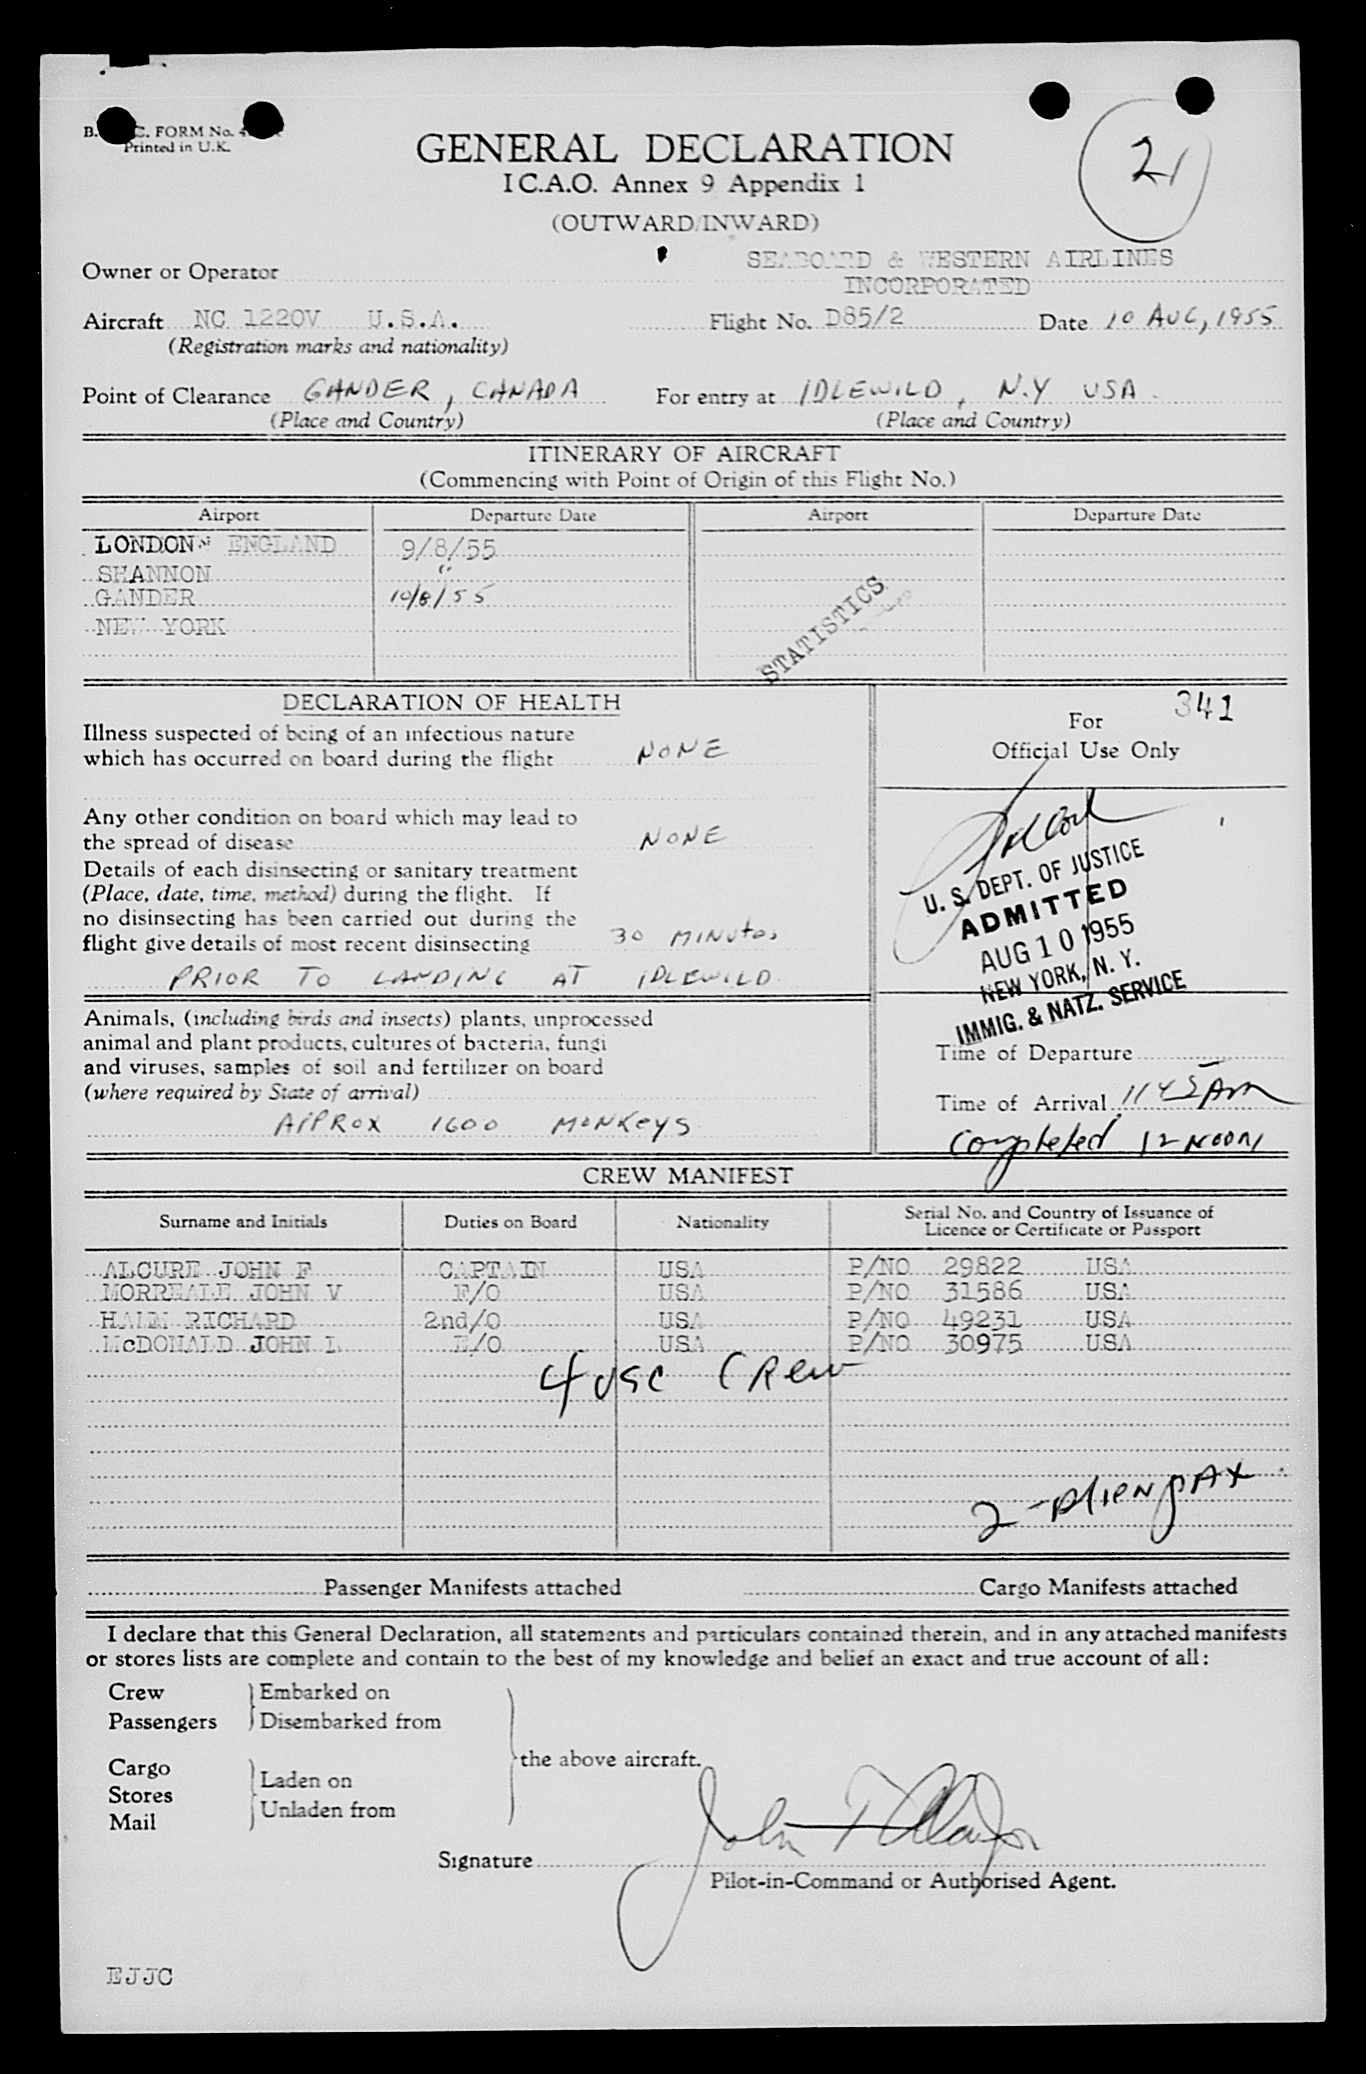 B. C. FORM No. 4
Printed in U.K.
GENERAL DECLARATION
I C.A.O. Annex 9 Appendix 1
(OUTWARD/INWARD)
21
Owner or Operator SEABOARD & WESTERN AIRLINES
INCORPORATED
Aircraft NC 1220V U.S.A. Flight No. D85/2 Date 10 AUG, 1955
(Registration marks and nationality)
Point of Clearance GANDER, CANADA For entry at IDLEWILD, N.Y USA.
(Place and Country) (Place and Country)
ITINERARY OF AIRCRAFT
(Commencing with Point of Origin of this Flight No.)
Airport Departure Date Airport Departure Date
LONDON ENGLAND 9/8/55
SHANNON "
GANDER 10/8/55
NEW YORK
STATISTICS
DECLARATION OF HEALTH
Illness suspected of being of an infectious nature
which has occurred on board during the flight NONE
Any other condition on board which may lead to
the spread of disease NONE
Details of each disinsecting or sanitary treatment
(Place, date, time, method) during the flight. If
no disinsecting has been carried out during the
flight give details of most recent disinsecting 30 MINUtes
PRIOR TO LANDING AT IDLEWILD
Animals, (including birds and insects) plants, unprocessed
animal and plant products, cultures of bacteria, fungi
and viruses, samples of soil and fertilizer on board
(where required by State of arrival)
APPROX 1600 MONKEYS
341
For
Official Use Only
U. S. DEPT. OF JUSTICE
ADMITTED
AUG 10 1955
NEW YORK, N. Y.
IMMIG. & NATZ. SERVICE
Time of Departure
Time of Arrival 1145 AM
Completed 12 NOON
CREW MANIFEST
Surname and Initials Duties on Board Nationality Serial No. and Country of Issuance of
Licence or Certificate or Passport
ALCURE JOHN F CAPTAIN USA P/NO 29822 USA
MORREALE JOHN V F/O USA P/NO 31586 USA
HALM RICHARD 2nd/O USA P/NO 49231 USA
McDONALD JOHN L E/O USA P/NO 30975 USA
4 USC CRew
2-AlieN pAX
Passenger Manifests attached Cargo Manifests attached
I declare that this General Declaration, all statements and particulars contained therein, and in any attached manifests
or stores lists are complete and contain to the best of my knowledge and belief an exact and true account of all:
Crew Embarked on
Passengers Disembarked from
the above aircraft.
Cargo Laden on
Stores
Mail Unladen from
Signature
Pilot-in-Command or Authorised Agent.
EJJC